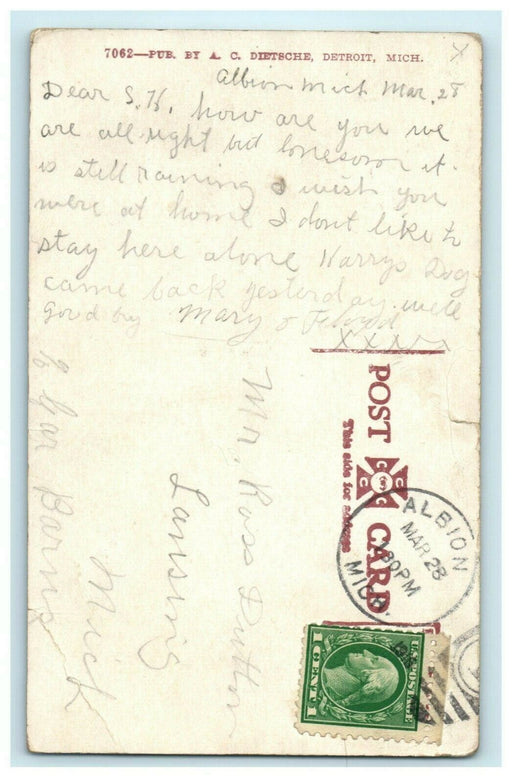 7062—PUB. BY A. C. DIETSCHE, DETROIT, MICH.
x
Albion Mich Mar. 28
Dear S. H. how are you we
are all right but lonesom it
is still raining I wish you
were at home I dont like to
stay here alone Harrys Dog
came back yesterday. well
Good by Mary & Floyd
x x x x x
POST CARD
This side for address
ALBION
MAR 28
30PM
MICH.
U.S. POSTAGE
1 CENT 1
Mr. Ross Dutton
Lansing
Mich